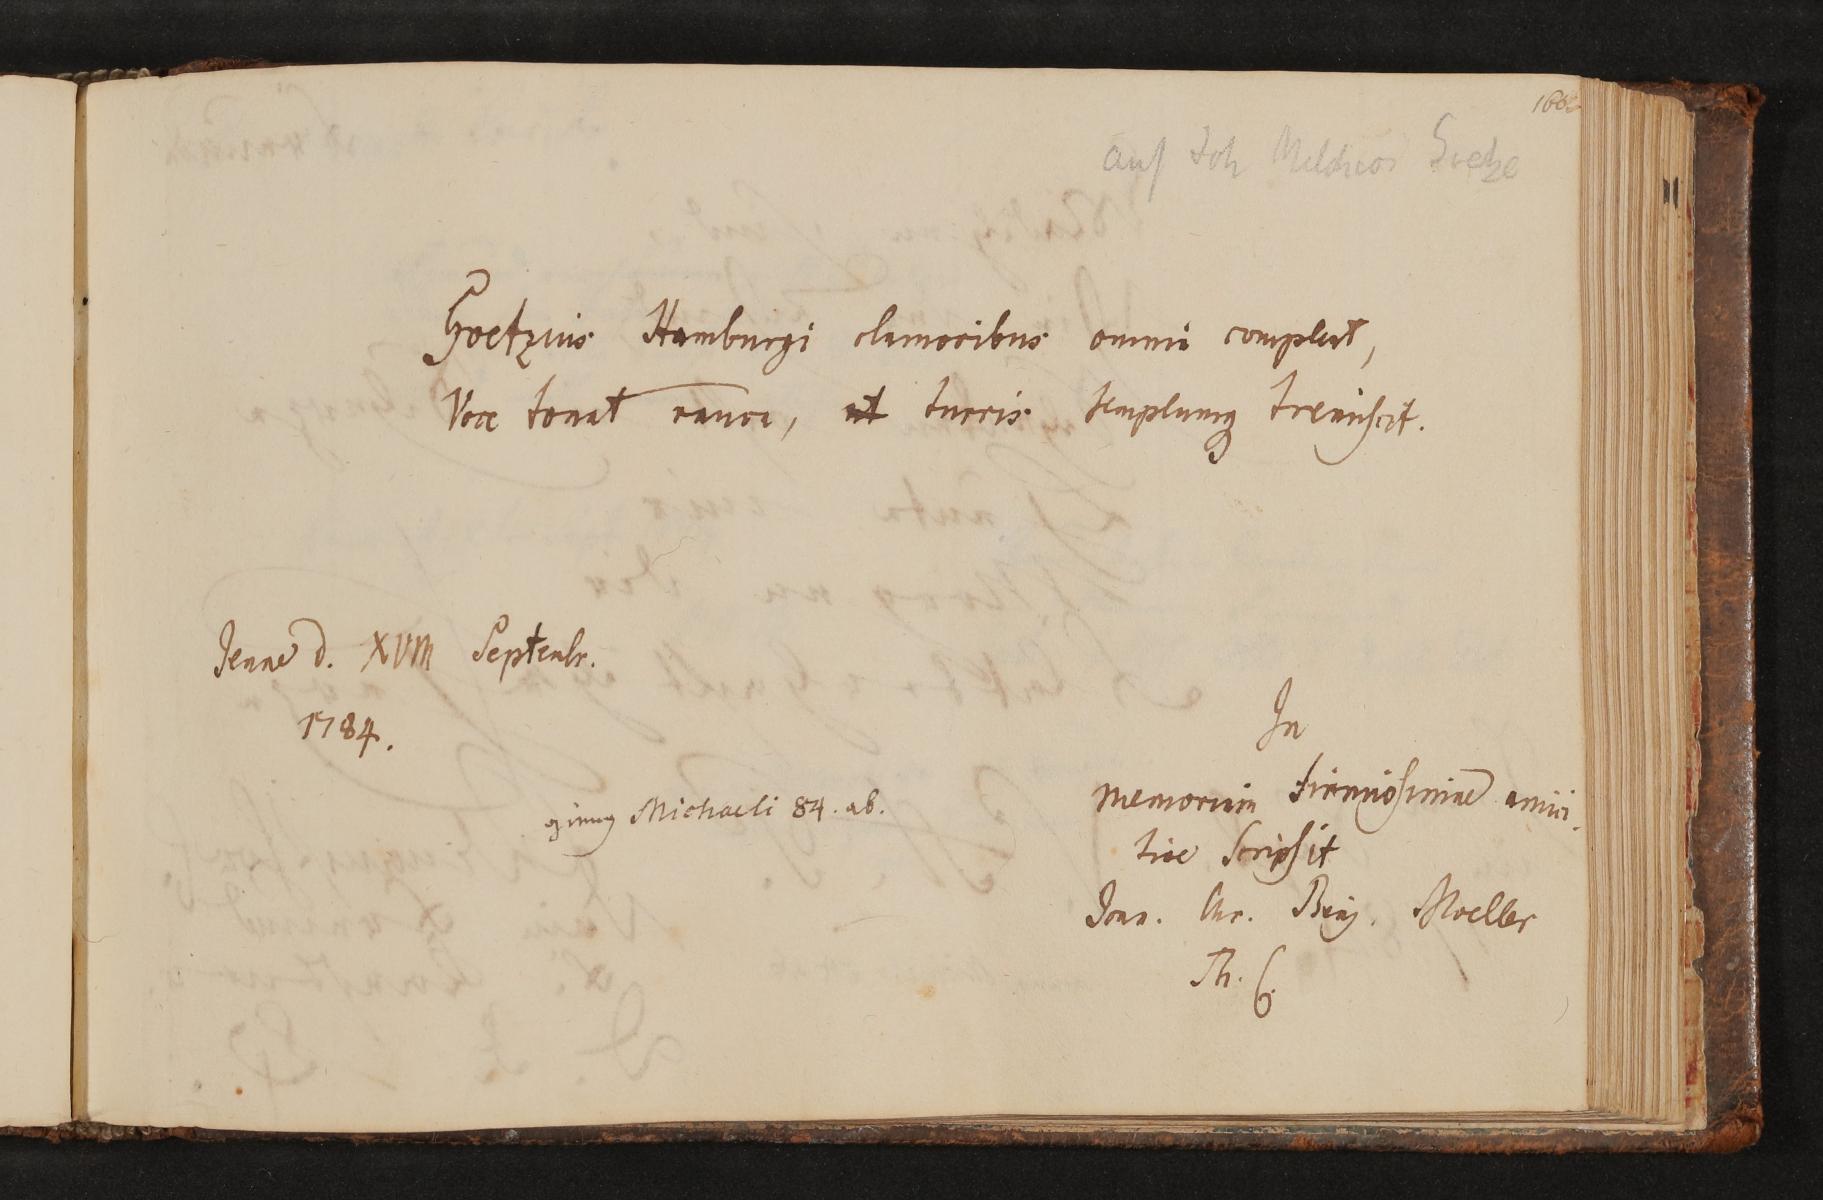 auf Joh Melchior Goetze
Goetzius Hamburgi clamoribus omnia complet,
Voce tonat rauca, ut turris templumq tremiscit.
Jenae d. XVIII Septembr.
1784.
ging Michaeli 84. ab.
In
memoriam firmiosimae amici
tiae scripsit
Joan. Chr. Benj. Moeller
Th. C.